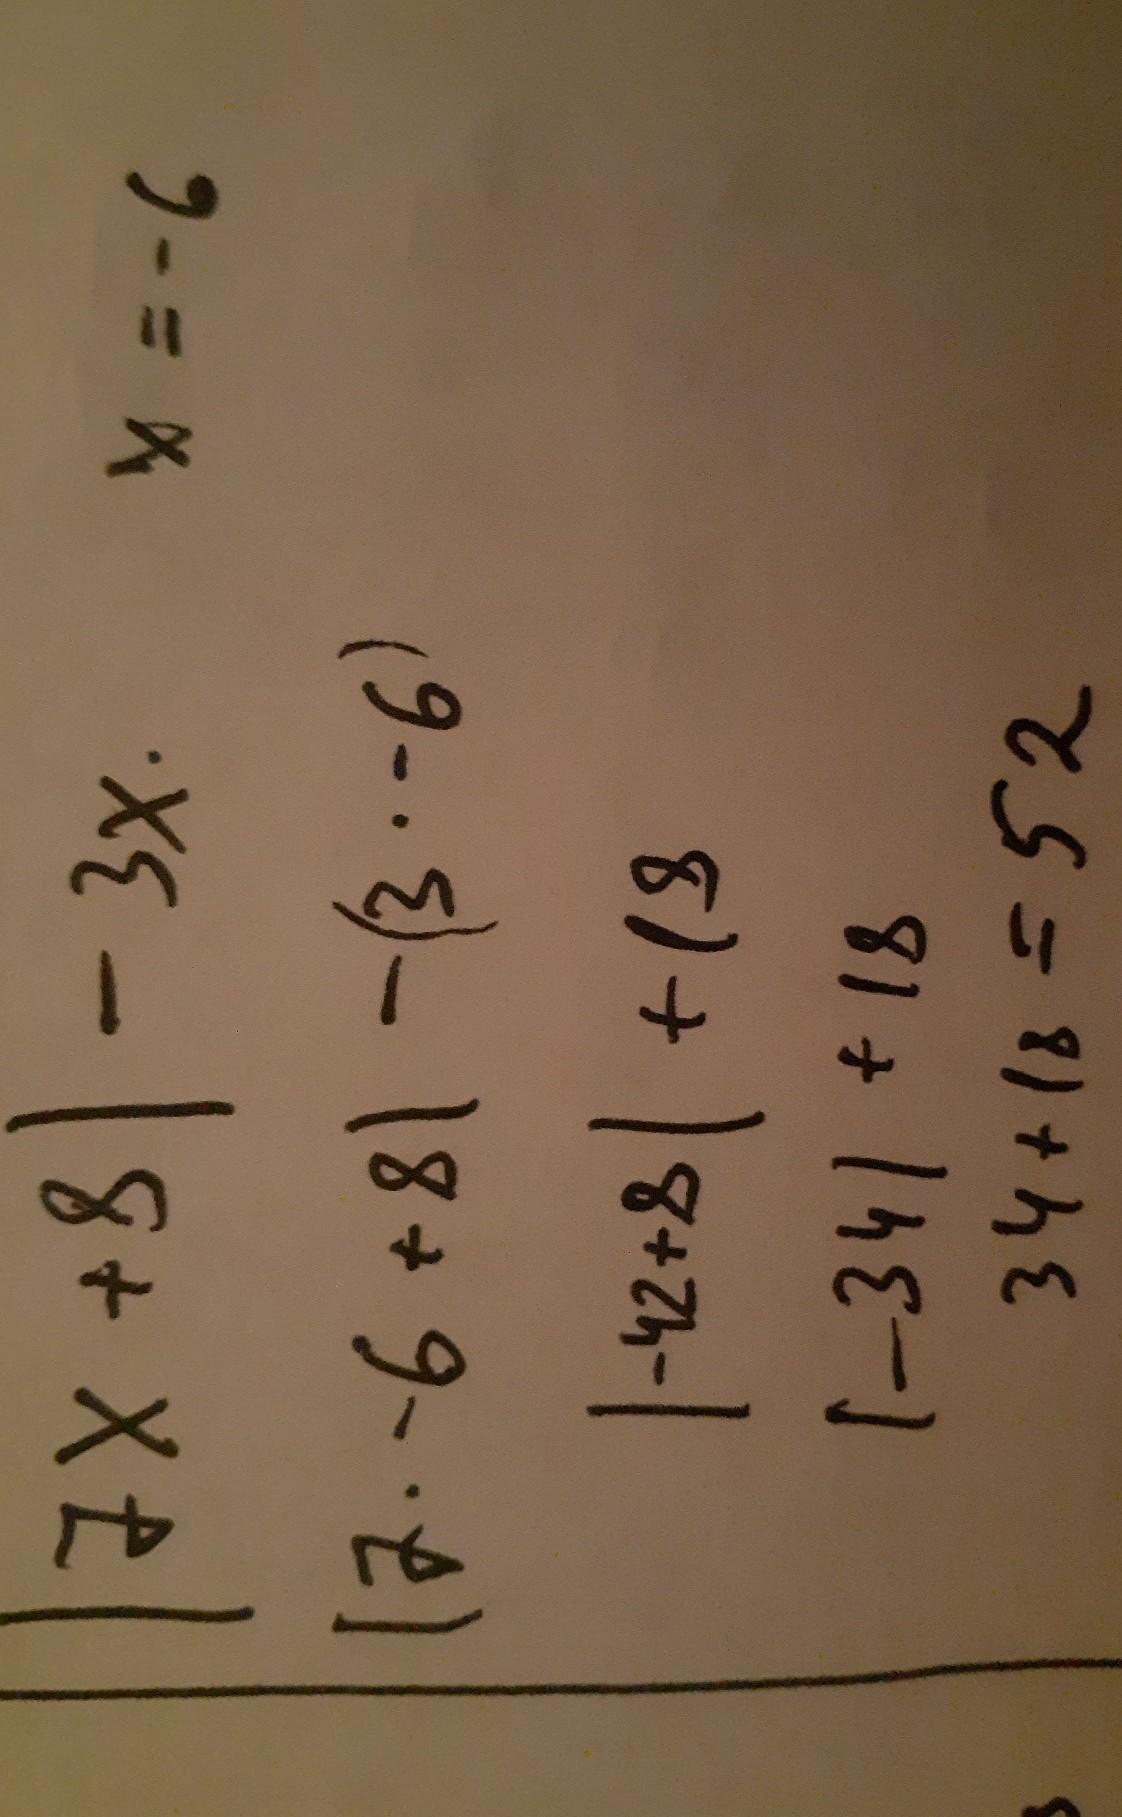 |7x +8| - 3x. x = -6
|7 · -6 +8| -(3 · -6)
|-42+8| +18
|-34| + 18
34+18 = 52